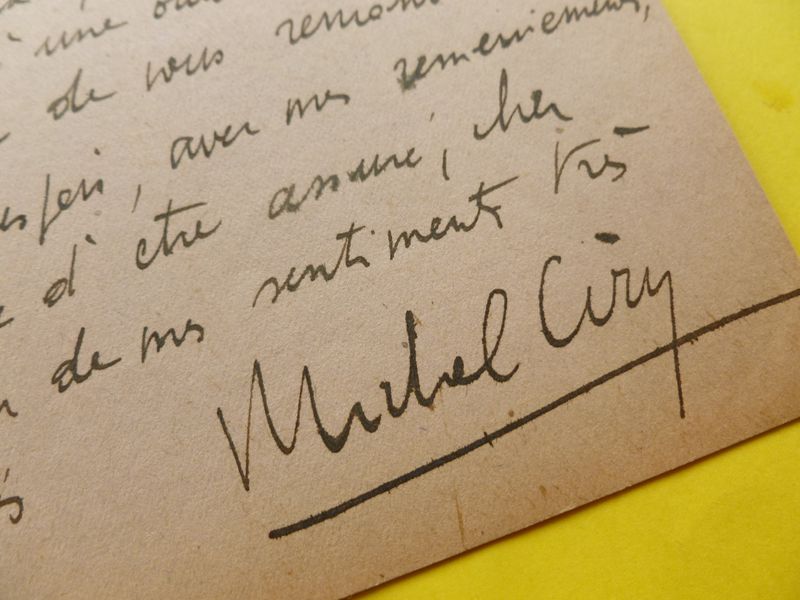 à une
de vous
fois, avec mes remerciements,
d'être assuré, cher
de mes sentiments très
Michel Ciry